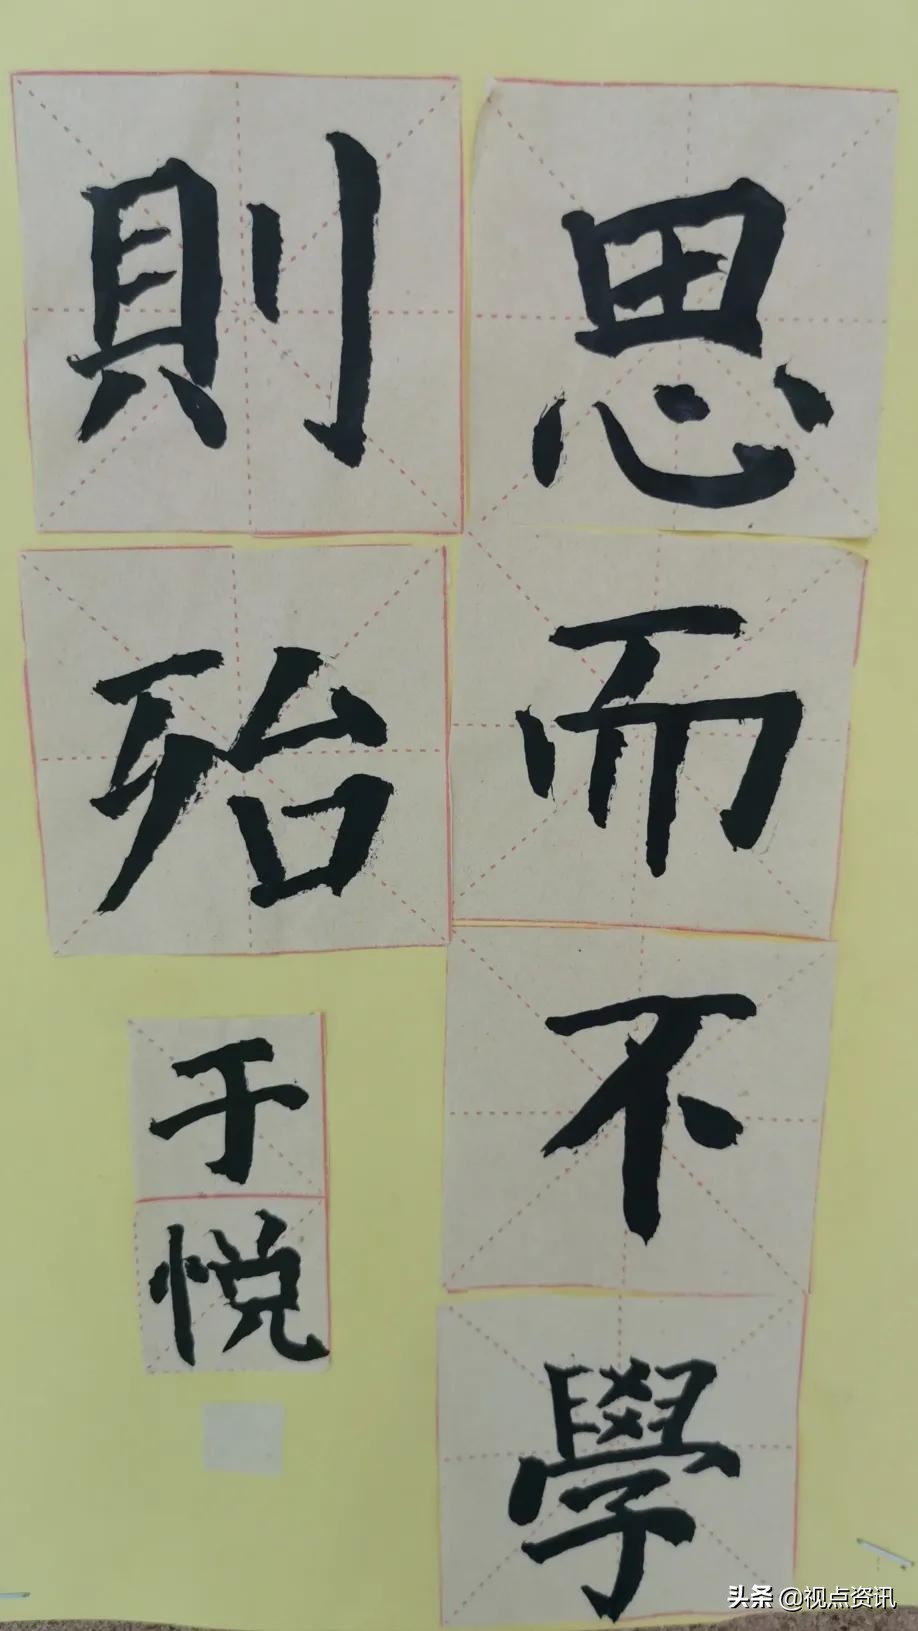 思而不學
則殆
于悦
头条 @视点资讯